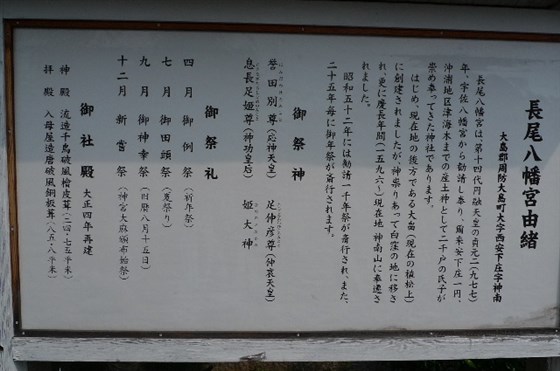 長尾八幡宮由緒
大島郡周防大島町大字西安下庄字神南
長尾八幡宮は、第十四代円融天皇の貞元二(九七七)
年、宇佐八幡宮から勧請し奉り、爾来安下庄一円、
沖浦地区津海木までの産土神として二千戸の氏子が
崇め奉ってきた神社であります。
はじめ、現在地の後方である大畠(現在の植松上)
に創建されましたが、神祟りあって白窪の地に移さ
れ、更に慶長年間(一五九六~)現在地神南山に奉遷さ
れました。
昭和五十二年には勧請一千年祭が斎行され、また、
二十五年毎に御年祭が斎行されます。
御祭神
誉田別尊(応神天皇) 足仲彦尊(仲哀天皇)
息長足姫尊(神功皇后) 姫大神
御祭礼
四月 御例祭(祈年祭)
七月 御田頭祭(夏祭り)
九月 御神幸祭(旧暦八月十五日)
十二月 新嘗祭(神宮大麻頒布始祭)
御社殿 大正四年再建
神殿 流造千鳥破風檜皮葺(二四・七五平米)
拝殿 入母屋造唐破風銅板葺(八五・八平米)